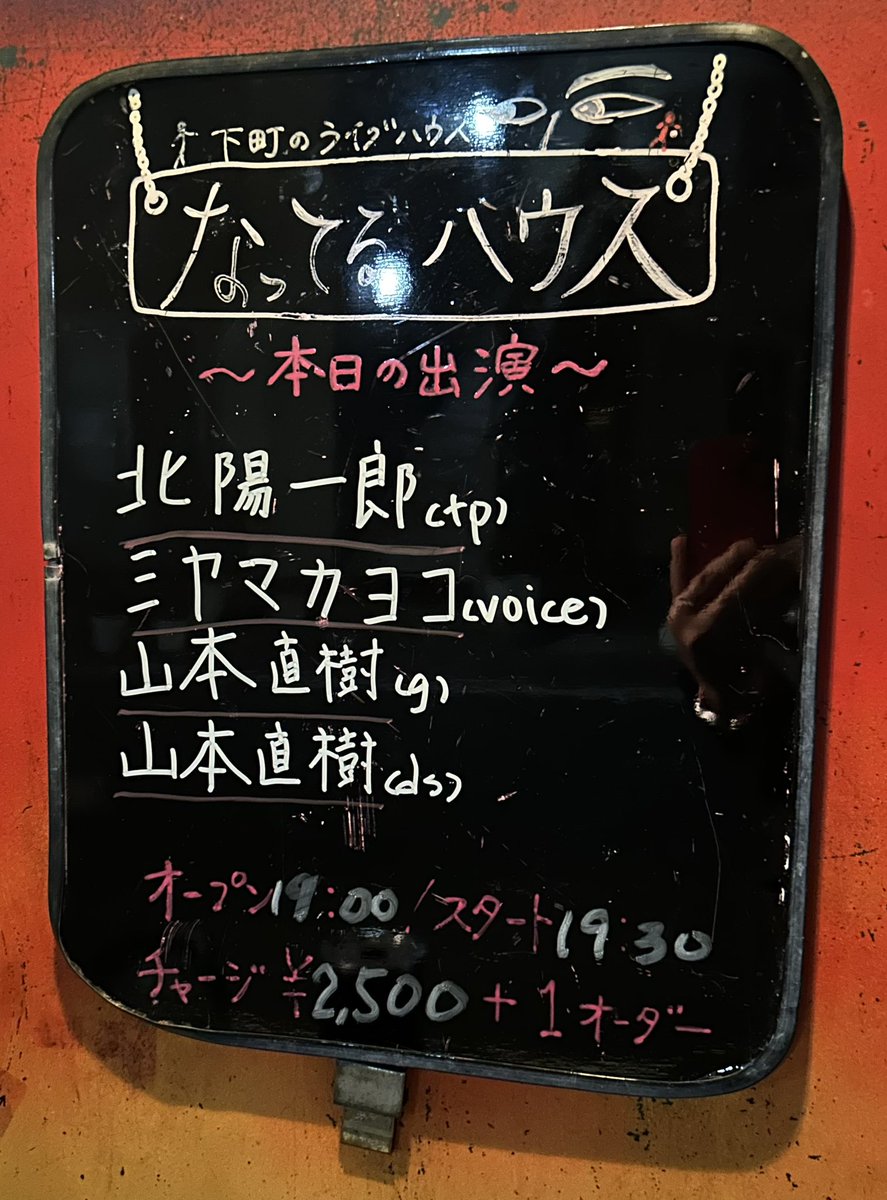 下町のライブハウス
なってるハウス
～本日の出演～
北陽一郎(tp)
ミヤマカヨコ(voice)
山本直樹(g)
山本直樹(ds)
オープン19:00/スタート19:30
チャージ¥2,500+1オーダー